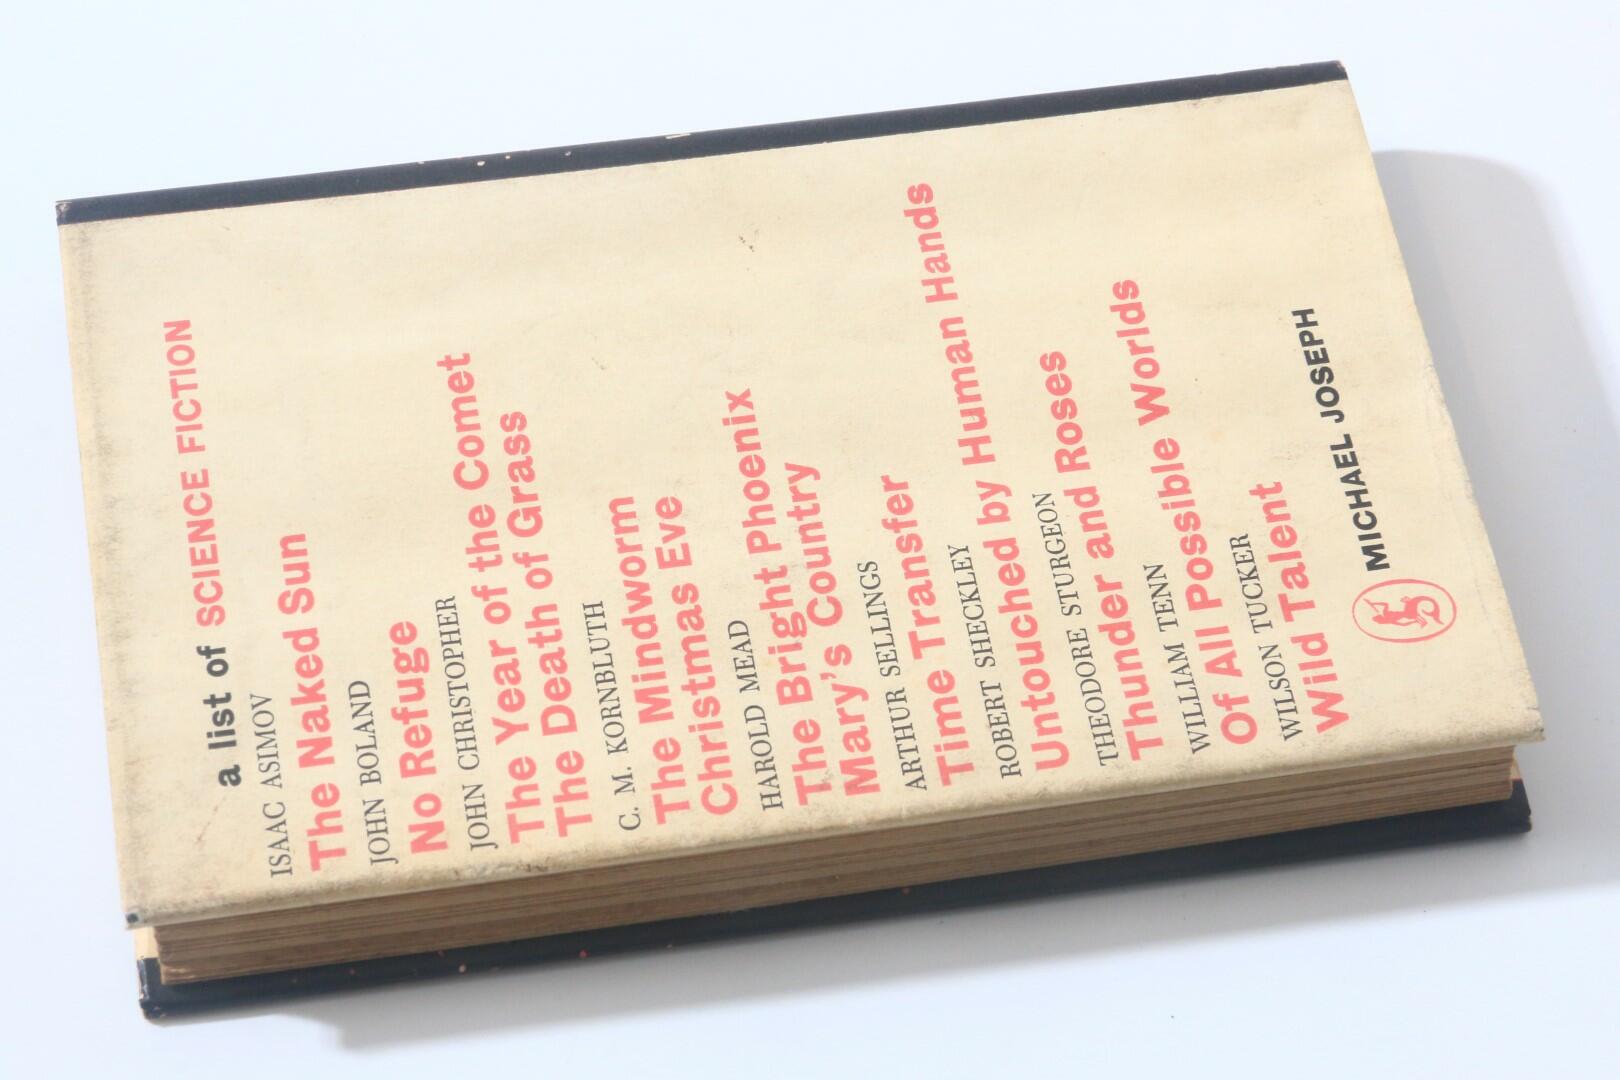 a list of SCIENCE FICTION
ISAAC ASIMOV
The Naked Sun
JOHN BOLAND
No Refuge
JOHN CHRISTOPHER
The Year of the Comet
The Death of Grass
C. M. KORNBLUTH
The Mindworm
Christmas Eve
HAROLD MEAD
The Bright Phoenix
Mary's Country
ARTHUR SELLINGS
Time Transfer
ROBERT SHECKLEY
Untouched by Human Hands
THEODORE STURGEON
Thunder and Roses
WILLIAM TENN
Of All Possible Worlds
WILSON TUCKER
Wild Talent
MICHAEL JOSEPH